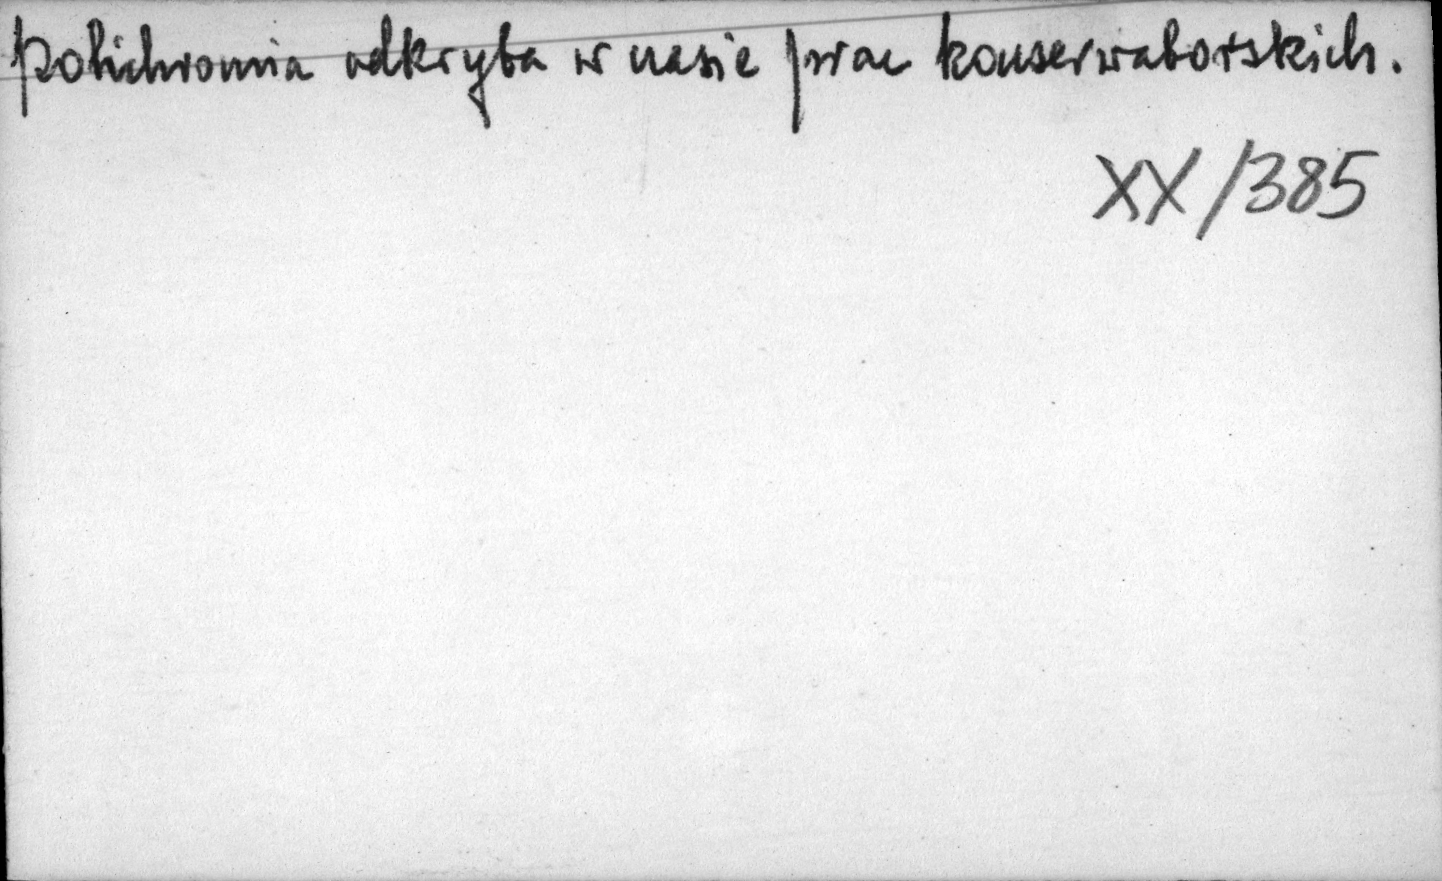 polichromia odkryta w czasie prac konserwatorskich.
XX/385